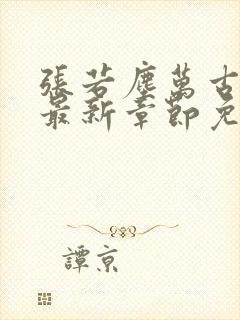 張若塵萬古
最新章節免
譚京